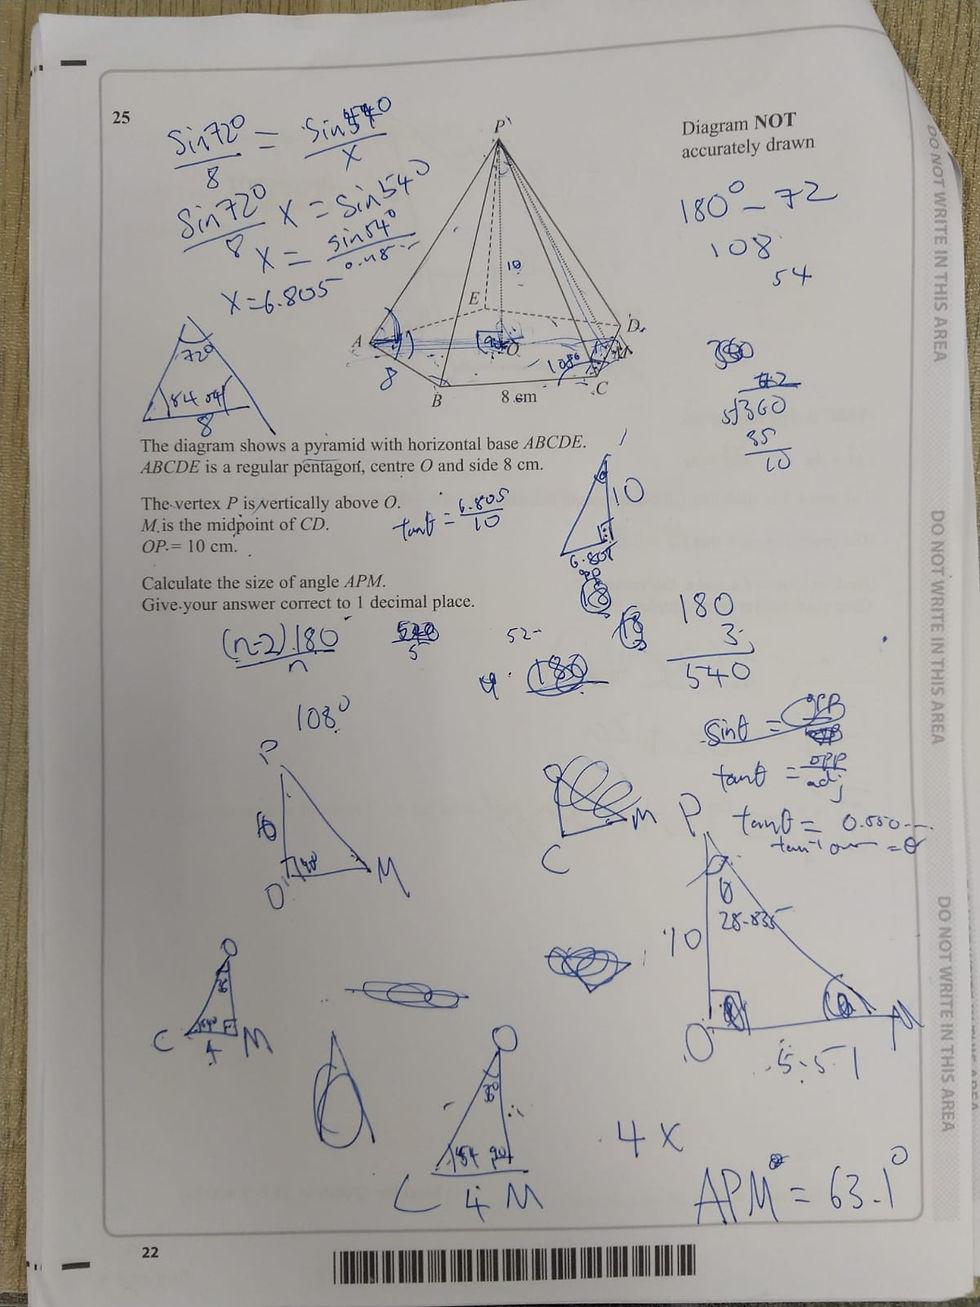 25
sin72° = sin54°
8 x
sin72° x = sin54°
8
x = sin54°
0.118...
x = 6.805
P
Diagram NOT
accurately drawn
180° - 72
108
54
10
E
A
D
O
108°
M
8
B
8 cm
C
72°
54
8
360
72
5√360
35
10
The diagram shows a pyramid with horizontal base ABCDE.
ABCDE is a regular pentagon, centre O and side 8 cm.
The vertex P is vertically above O.
M is the midpoint of CD.
OP = 10 cm.
tanθ = 6.805
10
10
6.805
Calculate the size of angle APM.
Give your answer correct to 1 decimal place.
(n-2) 180
n
540
5
52-
180
180
3
540
108°
sinθ = opp
tanθ = opp
adj
tanθ = 0.550...
tan⁻¹ = θ
P
10
90°
O
M
O
M
C
P
θ
28.835
10
O
M
5.51
O
36
54°
C
4
M
O
36°
54
90
C
4
M
4 x
APM = 63.1°
22
DO NOT WRITE IN THIS AREA
DO NOT WRITE IN THIS AREA
DO NOT WRITE IN THIS AREA